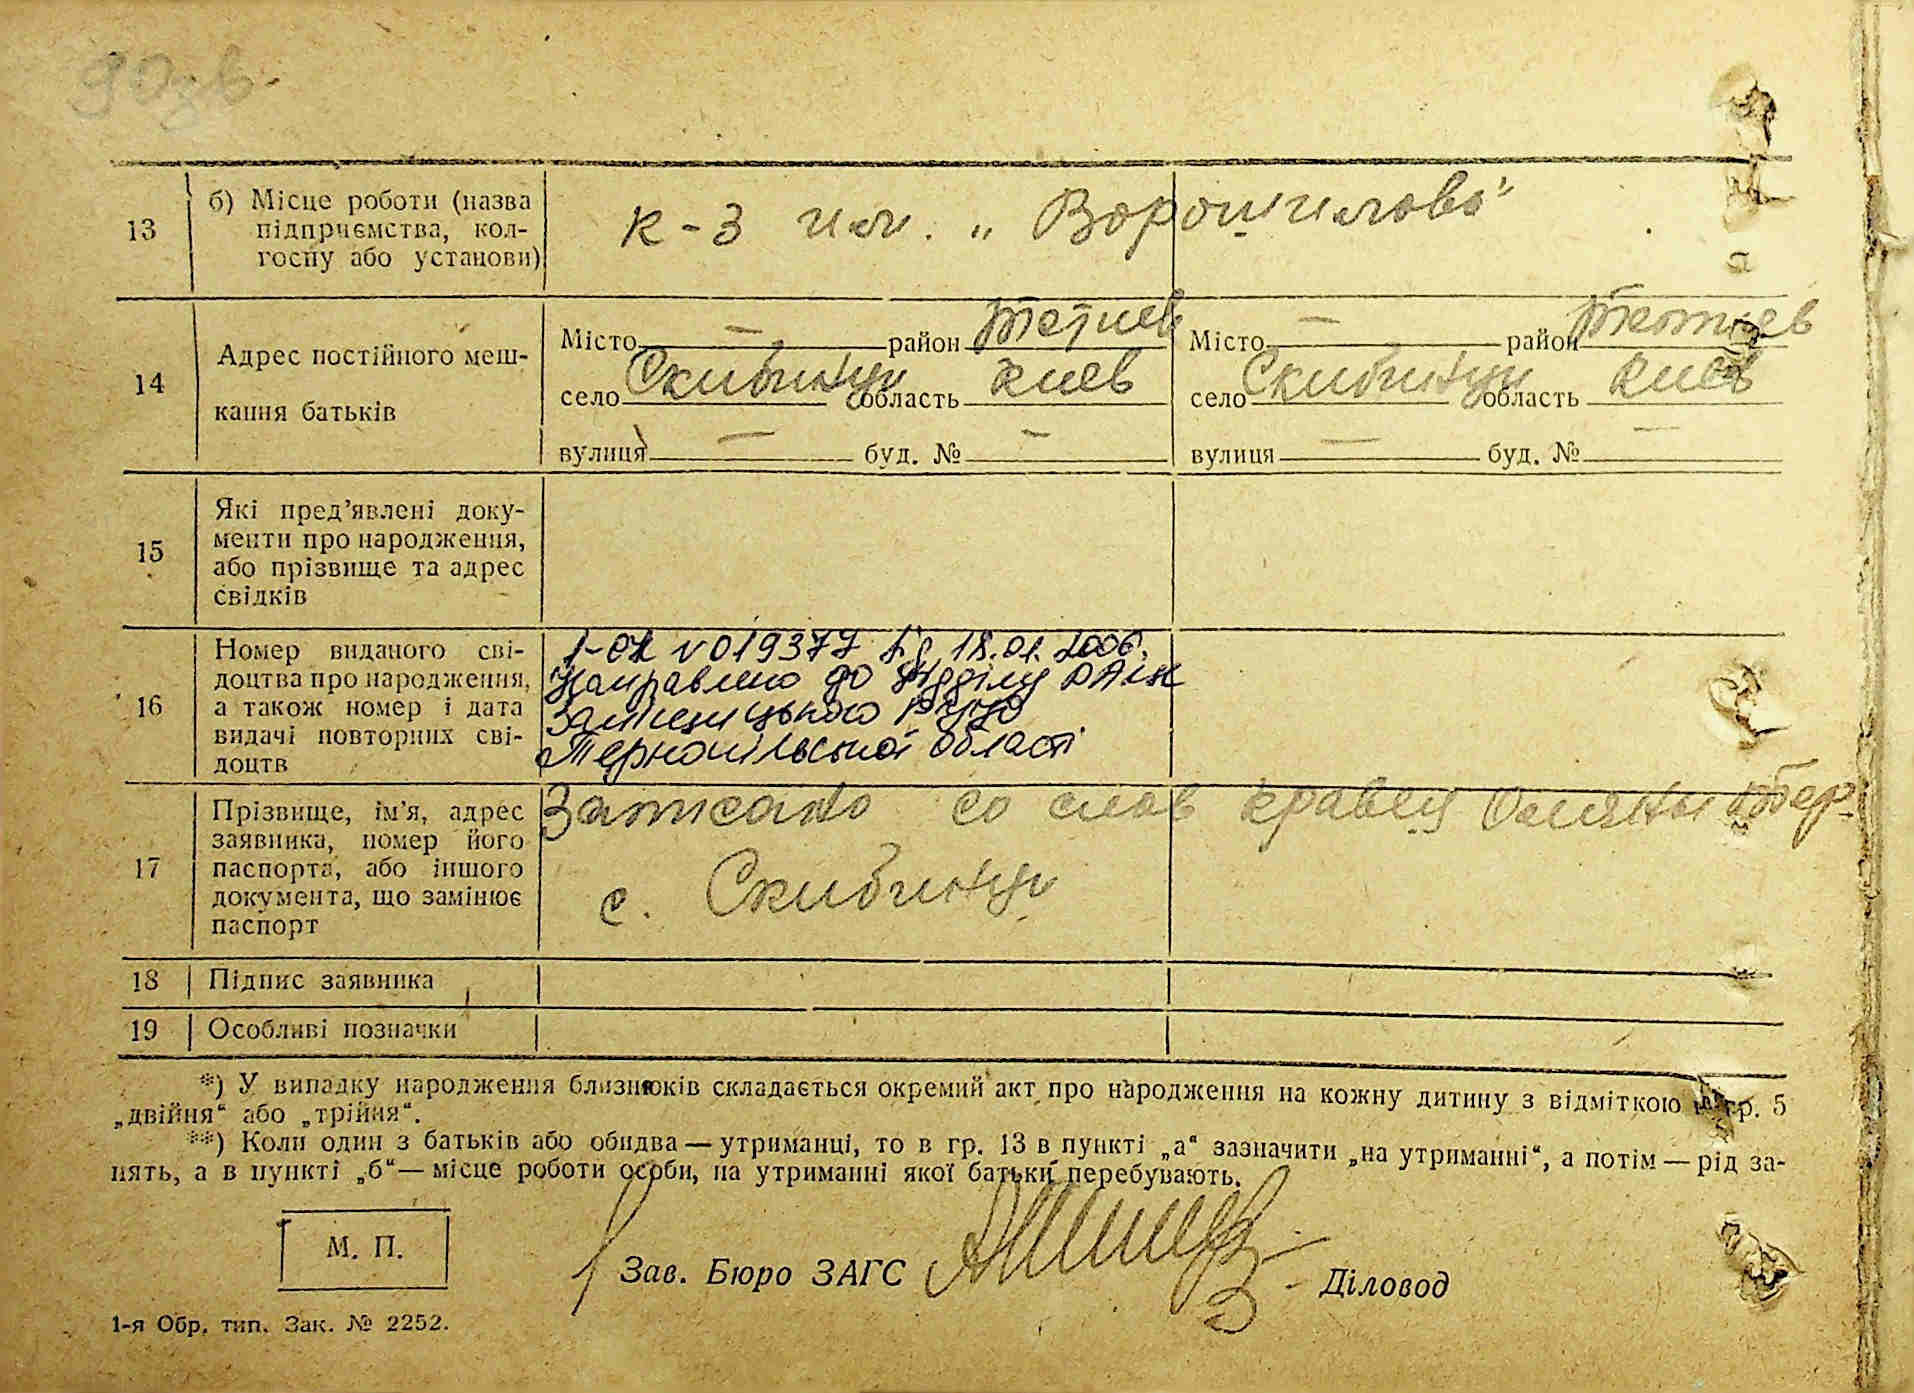 90зв
13 б) Місце роботи (назва підприємства, колгоспу або установи)
к-з им. „Ворошилова"
14 Адрес постійного мешкання батьків
Місто — район Тетиев
село Скибинци область Киев
вулиця — буд. № —
Місто — район Тетиев
село Скибинци область Киев
вулиця — буд. № —
15 Які пред'явлені доку-
менти про народження,
або прізвище та адрес
свідків
16 Номер виданого сві-
доцтва про народження,
а також номер і дата
видачі повторних сві-
доцтв
019377 від 18.01.2006.
Направлено до Відділу
Тернопільської області
17 Прізвище, ім'я, адрес
заявника, номер його
паспорта, або іншого
документа, що замінює
паспорт
Записано со слов Кравец
с. Скибинци
18 Підпис заявника
19 Особливі позначки
*) У випадку народження близнюків складається окремий акт про народження на кожну дитину з відміткою в гр. 5
„двійня“ або „трійня“.
**) Коли один з батьків або обидва — утриманці, то в гр. 13 в пункті „а“ зазначити „на утриманні“, а потім — рід за-
нять, а в пункті „б“ — місце роботи особи, на утриманні якої батьки перебувають.
М. П.
Зав. Бюро ЗАГС
Діловод
1-я Обр. тип. Зак. № 2252.